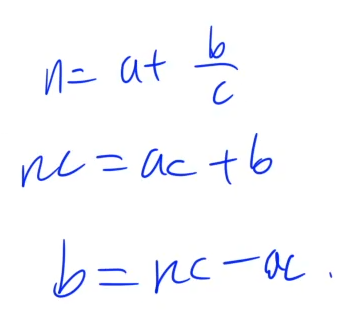 n = a + b/c
nc = ac + b
b = nc - ac.